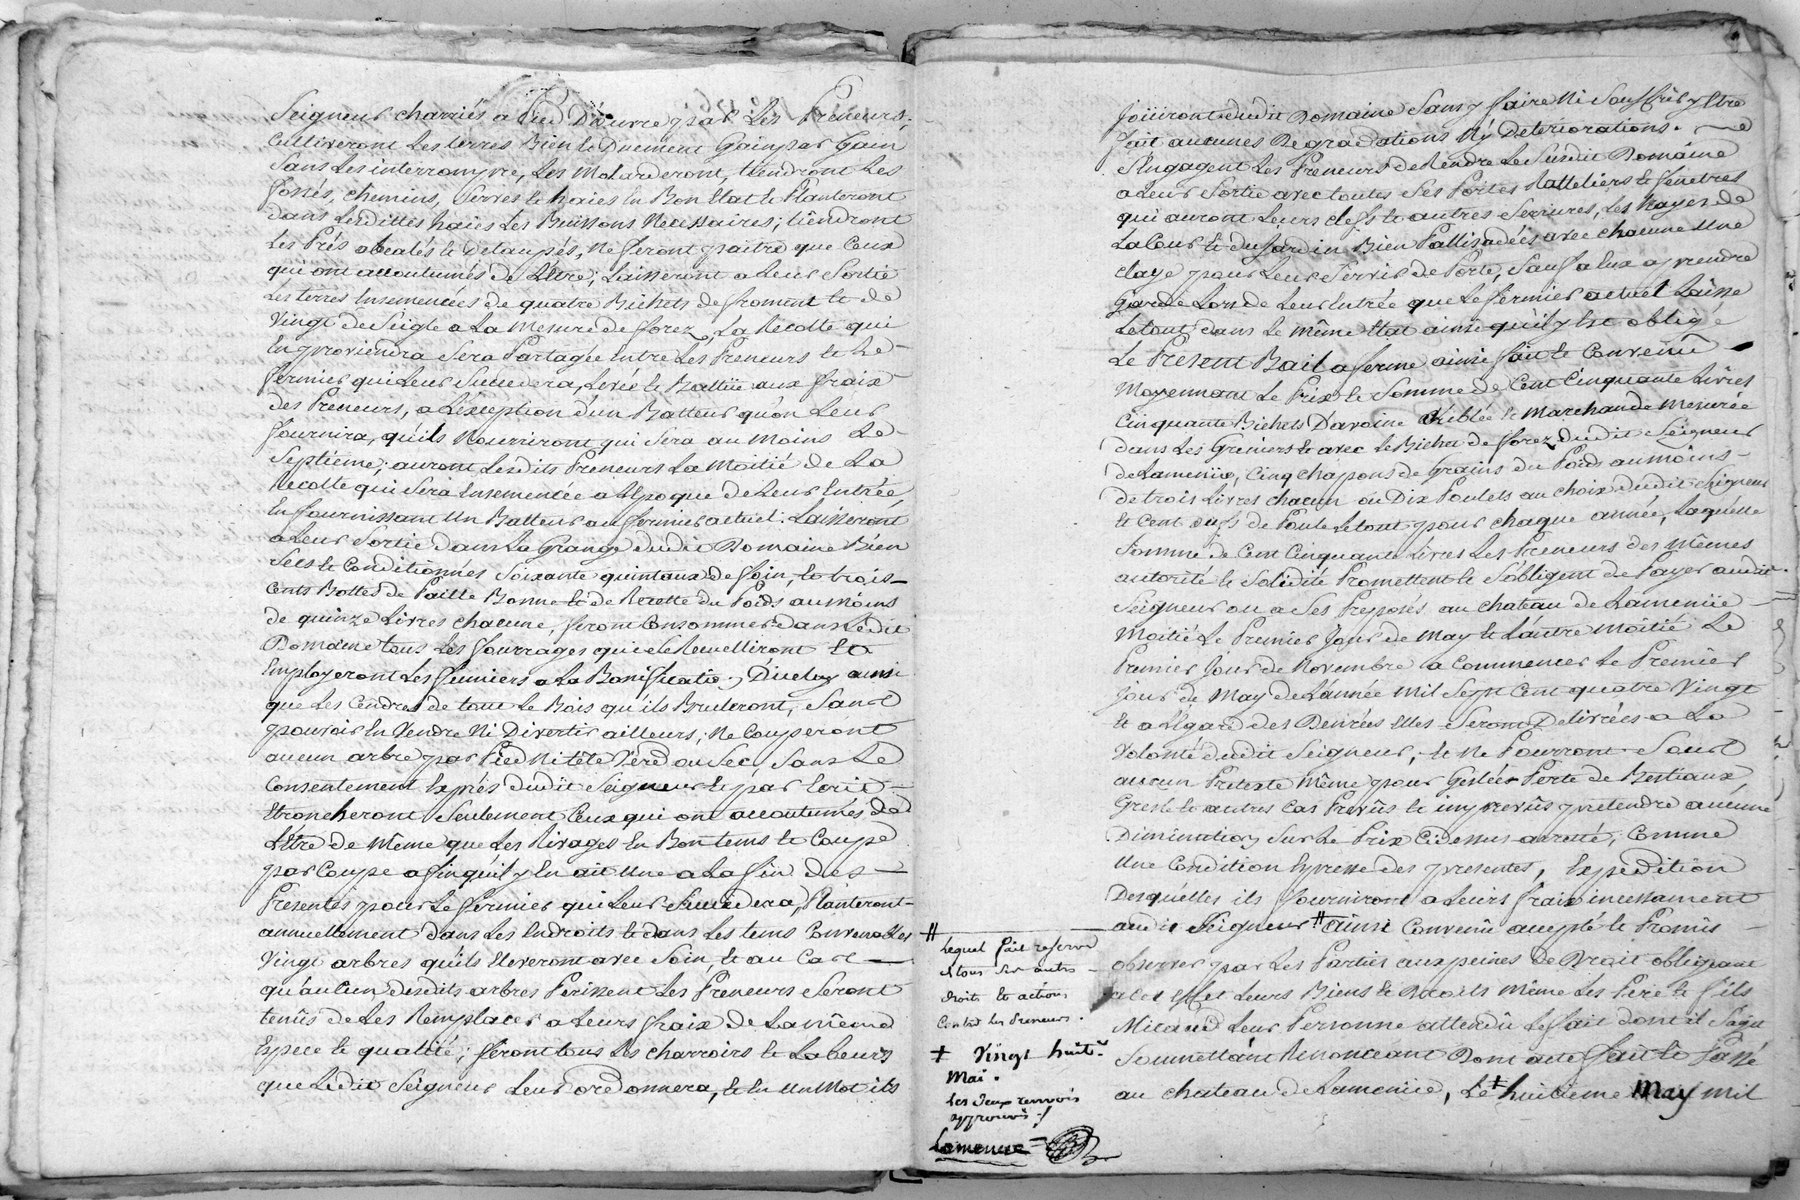 Seigneur charriés a Pied D'œuvre par Les Preneurs;
Cultiveront Les terres Bien et Duement Gain par Gain
Sans Les interrompre, Les Molarderont, tiendront Les
fossés, chemins, Serves et haies En Bon Etat et Planteront
dans Lesdittes haies Les Buissons Necessaires; tiendront
Les Prés abealés et Detaupés, Ne feront paitre que Ceux
qui ont accoutumés de L'Etre; Laisseront a Leur Sortie
Les terres Ensemencées de quatre Bichets de froment et de
Vingt de Seigle a La Mesure de forez, La Recolte qui
En proviendra Sera Partagée Entre Les Preneurs et Le
fermier qui Leur Succedera, Levée et Battüe aux fraix
des Preneurs, a L'éxception d'un Batteur qu'on Leur
fournira, qu'ils Nourriront qui Sera au Moins Le
Septiéme; auront Lesdits Preneurs La Moitié de La
Recolte qui Sera Ensemencée a L'Epoque de Leur Entrée,
En fournissant Un Batteur au fermier actuel. Laisseront
a Leur Sortie dans La Grange dudit Domaine Bien
Secs et Conditionnés Soixante quintaux de foin, et trois
Cents Bottes de Paille Bonne et de Recette du Poids au moins
de quinze Livres chacune, feront Consommer dans Ledit
Domaine tous Les fourrages qui se Recuëilliront et
Employeront Les fumiers a La Bonification D'iceluy ainsi
que Les Cendres de tout Le Bois qu'ils Bruleront, Sans
pouvoir En Vendre Ni Divertir ailleurs; Ne Couperont
aucun arbre par Pied Ni tête Verd ou Sec, Sans Le
Consentement Exprés dudit Seigneur et par Ecrit
Etroncheront Seulement Ceux qui ont accoutumés de
L'Etre de Même que Les Rivages En Bon tems et Coupe
par Coupe afin qu'il y En ait Une a La fin des
Presentes pour Le fermier qui Leur Succedera, Planteront
annuellement dans Les Endroits et dans Les tems Convenables
Vingt arbres qu'ils Eleveront avec Soin, et au Cas
qu'aucun desdits arbres Perissent Les Preneurs Seront
tenûs de Les Remplacer a Leurs fraix de La même
Espece et qualité; feront tous Les charrois et Labeurs
que Ledit Seigneur Leur ordonnera, et En Un Mot ils
Joüiront dudit Domaine Sans y faire Ni Souffrir y Etre
fait aucunes Degradations Ny Deteriorations.
S'Engagent Les Preneurs de Rendre Le Susdit Domaine
a Leur Sortie avec toutes Ses Portes Ratteliers et fenetres
qui auront Leurs clefs et autres Serrures, Les hayes de
La Cour et du Jardin Bien Pallissadées avec chacune Une
claye pour Leur Servir de Porte, Sauf a Eux a prendre
Garde Lors de Leur Entrée que Le fermier actuel Laisse
Le tout dans Le même Etat ainsi qu'il y Est obligé
Le Present Bail a ferme ainsi fait et Convenû
Moyennant Le Prix et Somme de Cent Cinquante Livres
Cinquante Bichets D'avoine Criblée et Marchande Mesurée
dans Les Greniers et avec Le Bichet de forez dudit Seigneur
de Lamenüe, Cinq chapons de Grains du Poids au moins
de trois Livres chacun ou Dix Poulets au choix dudit Seigneur
et Cent œufs de Poule Le tout pour chaque année, Laquelle
Somme de Cent Cinquante Livres Les Preneurs des Mêmes
autorité et Solidité Promettent et S'obligent de Payer audit
Seigneur ou a Ses Preposés au chateau de Lamenüe
Moitié Le Premier Jour de May et L'autre Moitié Le
Premier Jour de Novembre a Commencer Le Premier
Jour de May de L'année Mil Sept Cent quatre Vingt
et a L'Egard des Denrées Elles Seront Delivrées a La
Volonté dudit Seigneur, et Ne Pourront Sous
aucun Pretexte Même pour Gelées Perte de Bestiaux
Gresle et autres Cas Prevûs et imprevûs pretendre aucune
Diminution Sur Le Prix Cidessus arreté, Comme
Une Condition Expresse des presentes, Expedition
Desquelles ils fourniront a Leurs fraix incessament
audit Seigneur # ainsi Convenû accepté et Promis
observer par Les Parties aux peines de Droit obligeant
a Cet Effet Leurs Biens et Droits Même Les Pere et fils
Micaud Leur Personne attendû Le fait dont il S'agit
Soumettant Renonceant Dont acte fait et Passé
au chateau de Lamenüe, Le + huitieme May Mil
#
Lequel fait reserve
de tous ses autres
droits et actions
Contre les Preneurs.
+ Vingt huit.
Mai.
Les deux renvois
approuvés
Lamenue